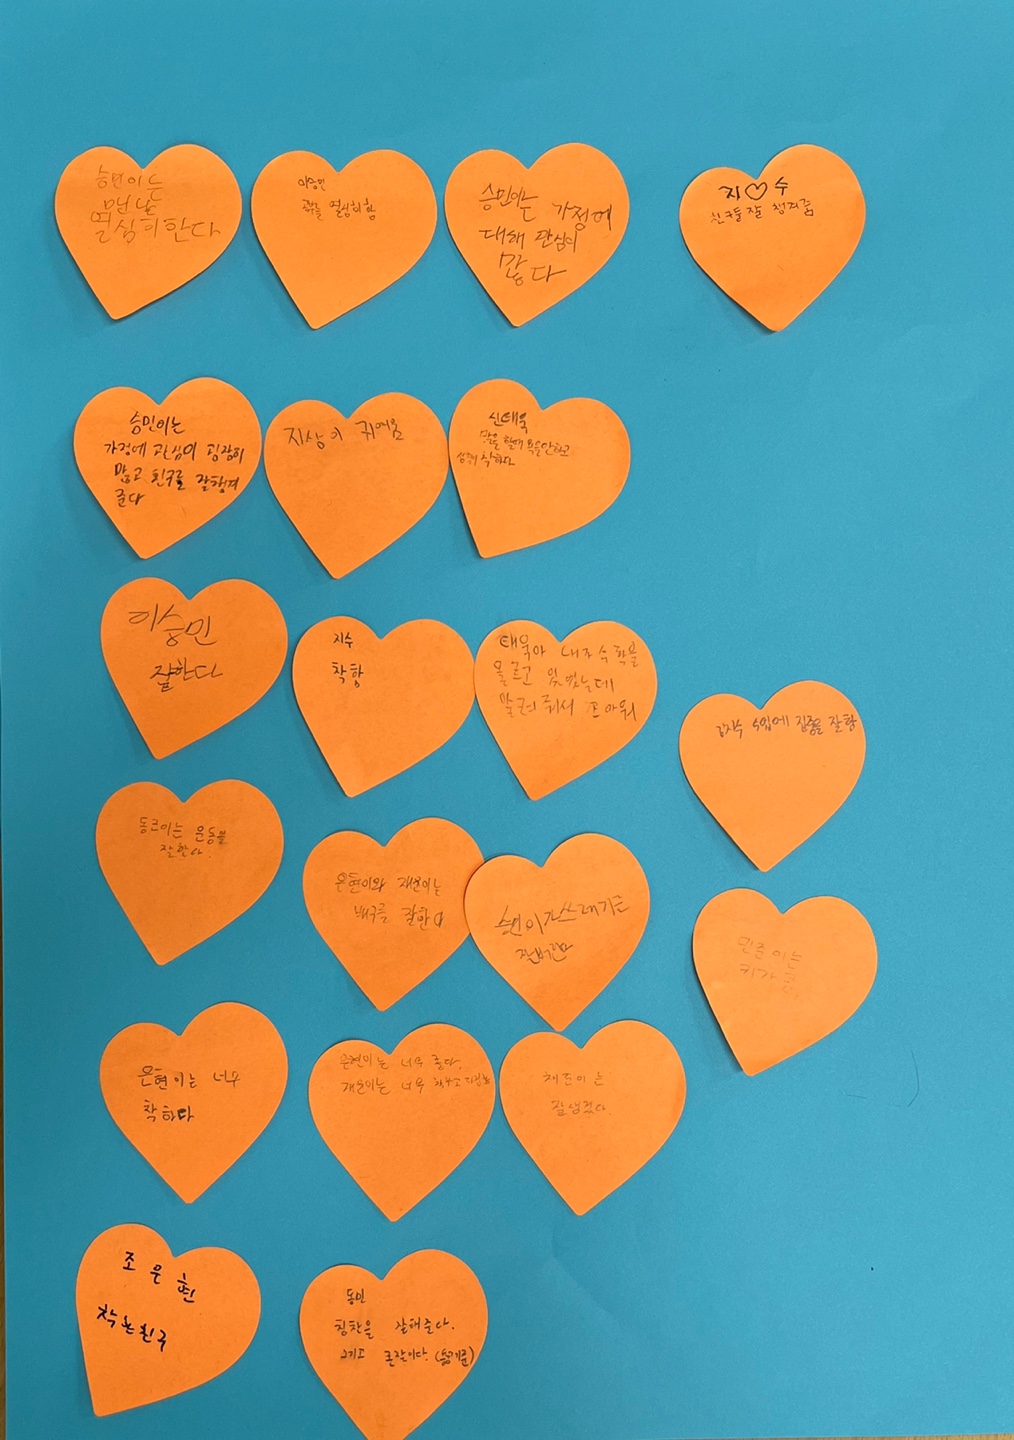 승민이는
맨날
열심히 한다
이승민
열심히 함
승민이는 가정에
대해 관심이
많다
지♡수
친구들 잘 챙겨줌
승민이는
가정에 관심이 굉장히
많고 친구를 잘 챙겨
준다
지상이 귀여움
신태욱
말을 할때 욕을안하고
성격이 착하다
이승민
잘한다
지수
착함
태욱아 내가 수학을
모르고 있었는데
알려줘서 고마워
수업에 집중을 잘함
동근이는 운동을
잘한다.
은현이와 재윤이는
배구를 잘한다
승민이가 쓰레기를
잘버린다
민준이는
키가 크다
은현이는 너무
착하다
은현이는 너무 좋다.
재윤이는 너무 착하고
는
잘생겼다.
조은현
착한친구
동민
칭찬을 잘해준다.